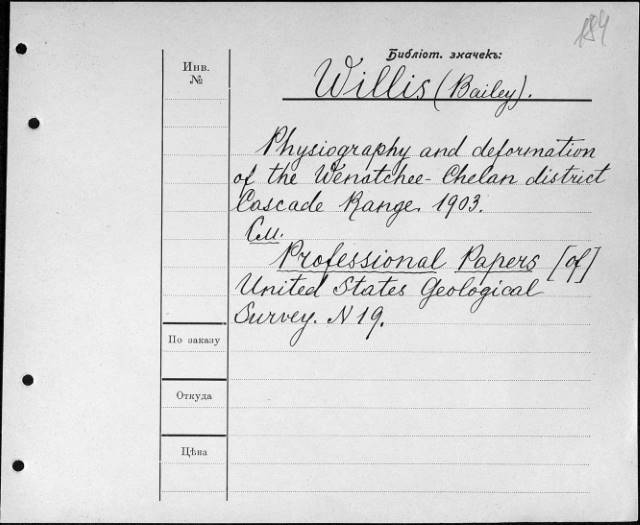 184
Библіот. значекъ:
Инв.
№
Willis (Bailey).
Physiography and deformation
of the Wenatchee-Chelan district
Cascade Range. 1903.
См.
Professional Papers [of]
United States Geological
Survey. N 19.
По заказу
Откуда
Цѣна